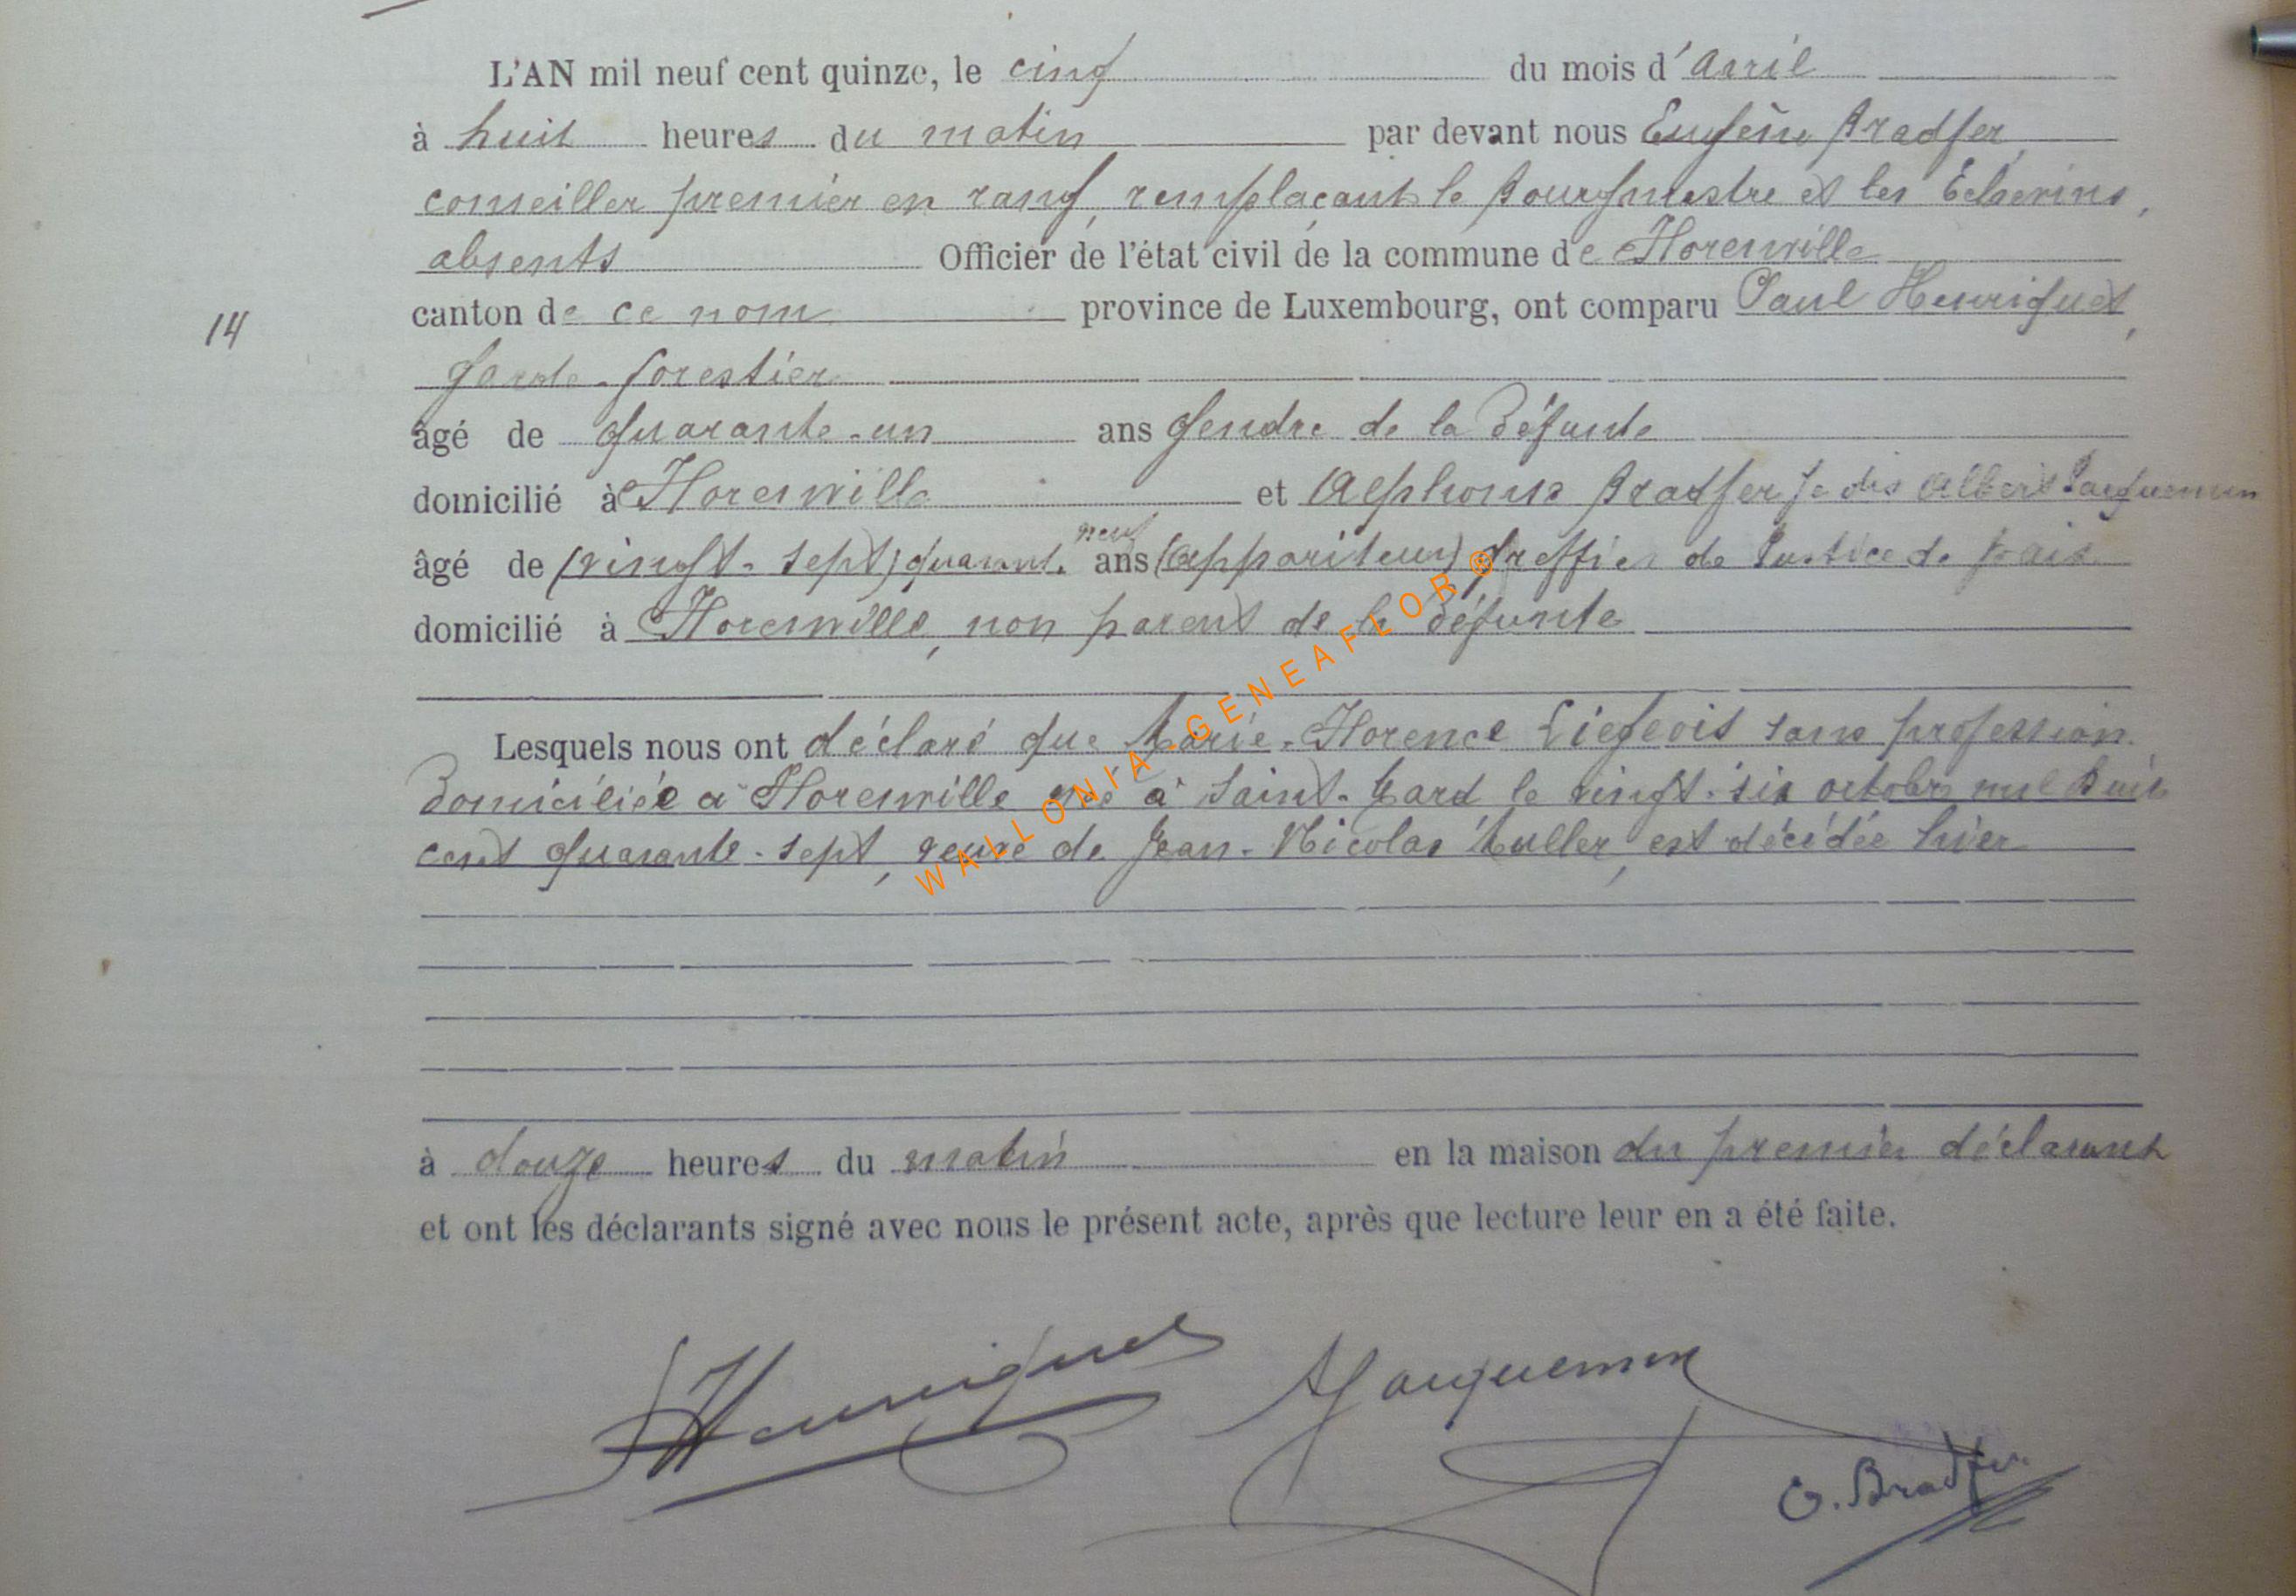 L'AN mil neuf cent quinze, le cinq du mois d'Avril
à huit heures du matin par devant nous Eugène Bradfer,
conseiller premier en rang, remplaçant le Bourgmestre et les Echevins,
absents Officier de l'état civil de la commune de Florenville
14
canton de ce nom province de Luxembourg, ont comparu Paul Henriquet,
garde-forestier
âgé de quarante-un ans gendre de la défunte
domicilié à Florenville et Alphonse Bradfer je dis Albert Jacquemin
neuf
âgé de (vingt-sept) quarant. ans (appariteur) greffier de Justice de paix
domicilié à Florenville, non parent de la défunte
Lesquels nous ont déclaré que Marie-Florence Liegeois sans profession
domiciliée a Florenville née à Saint-Mard le vingt-six octobre mil huit
cent quarante-sept, veuve de Jean-Nicolas Muller, est décédée hier
à douze heures du matin en la maison du premier déclarant
et ont les déclarants signé avec nous le présent acte, après que lecture leur en a été faite.
Henriquet AJacquemin
E. Bradfer
WALLONIA-GENEAFLOR®